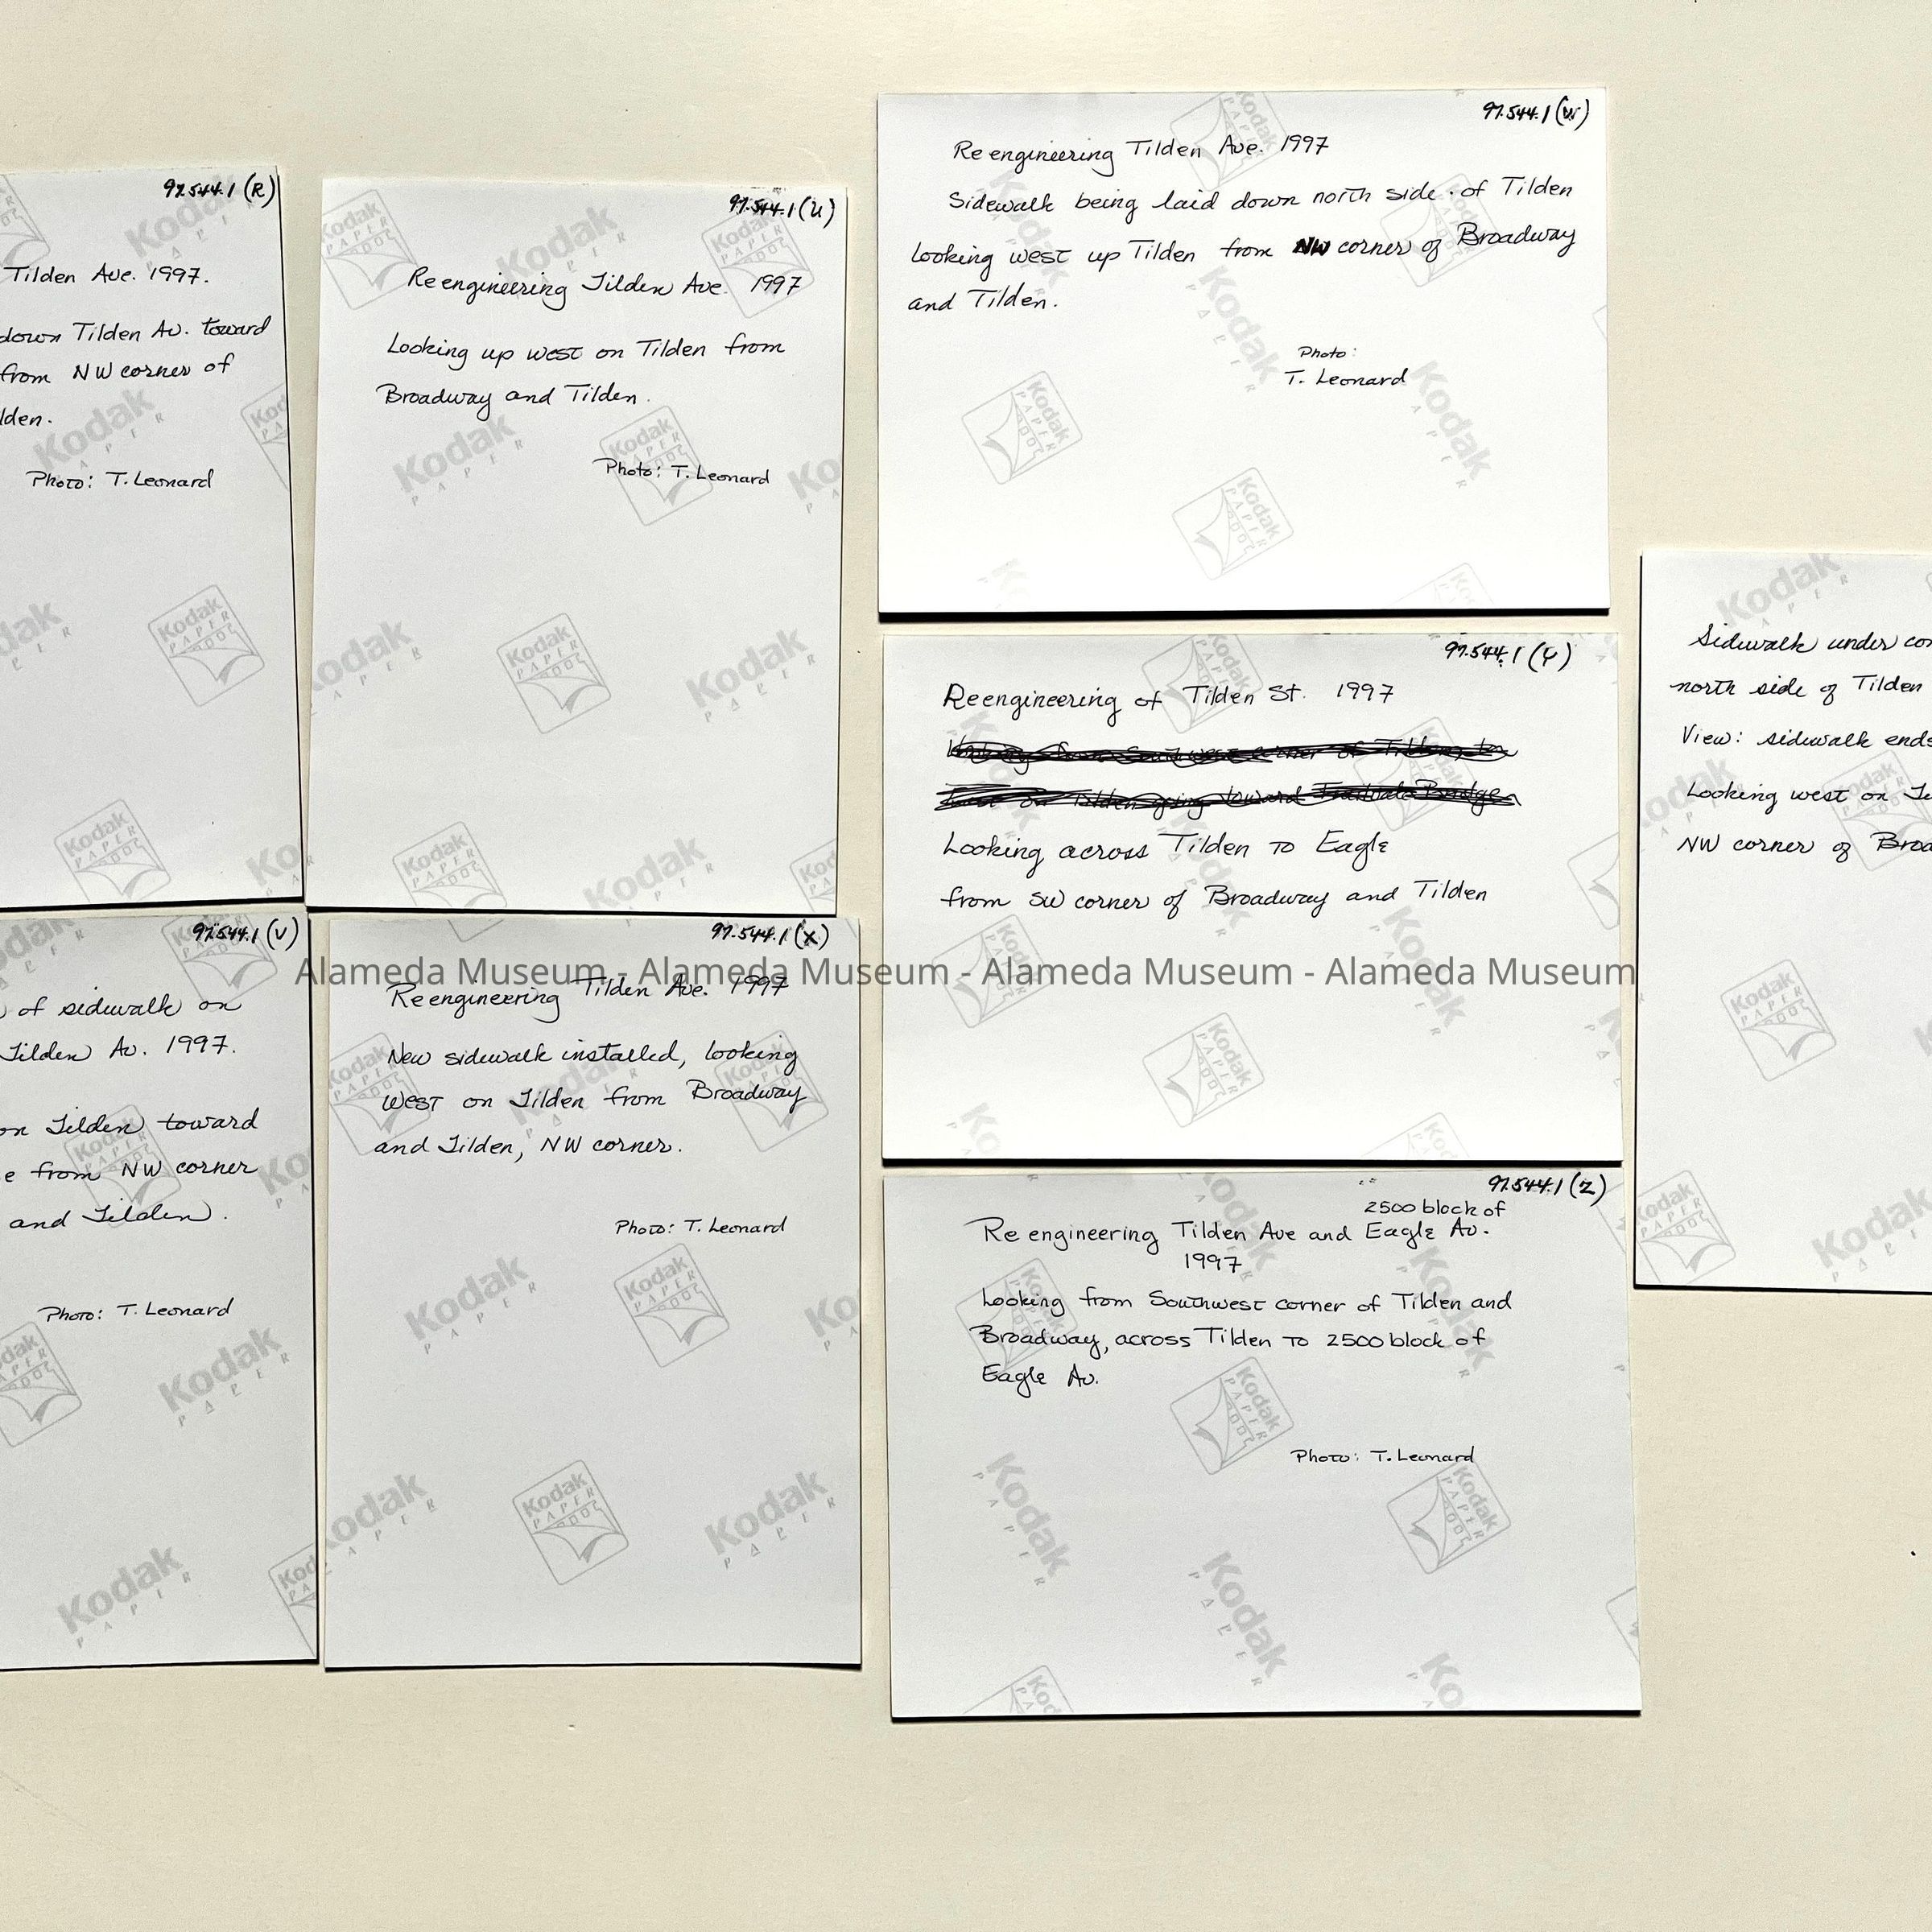 97.544.1 (R)
Tilden Ave. 1997.
down Tilden Av. toward
from NW corner of
lden.
Photo: T. Leonard
97.544.1 (U)
Reengineering Tilden Ave. 1997
Looking up west on Tilden from
Broadway and Tilden.
Photo: T. Leonard
97.544.1 (W)
Reengineering Tilden Ave. 1997
Sidewalk being laid down north side of Tilden
Looking west up Tilden from NW corner of Broadway
and Tilden.
Photo:
T. Leonard
97.544.1 (Y)
Reengineering of Tilden St. 1997
Looking across Tilden to Eagle
from SW corner of Broadway and Tilden
Sidewalk under con
north side of Tilden
View: sidewalk ends
Looking west on Ti
NW corner of Broa
97.544.1 (V)
of sidewalk on
Tilden Av. 1997.
on Tilden toward
e from NW corner
and Tilden.
Photo: T. Leonard
97.544.1 (X)
Alameda Museum - Alameda Museum - Alameda Museum - Alameda Museum
Reengineering Tilden Ave. 1997
New sidewalk installed, looking
west on Tilden from Broadway
and Tilden, NW corner.
Photo: T. Leonard
97.544.1 (Z)
2500 block of
Reengineering Tilden Ave and Eagle Av.
1997
Looking from Southwest corner of Tilden and
Broadway, across Tilden to 2500 block of
Eagle Av.
Photo: T. Leonard
Kodak
PAPER